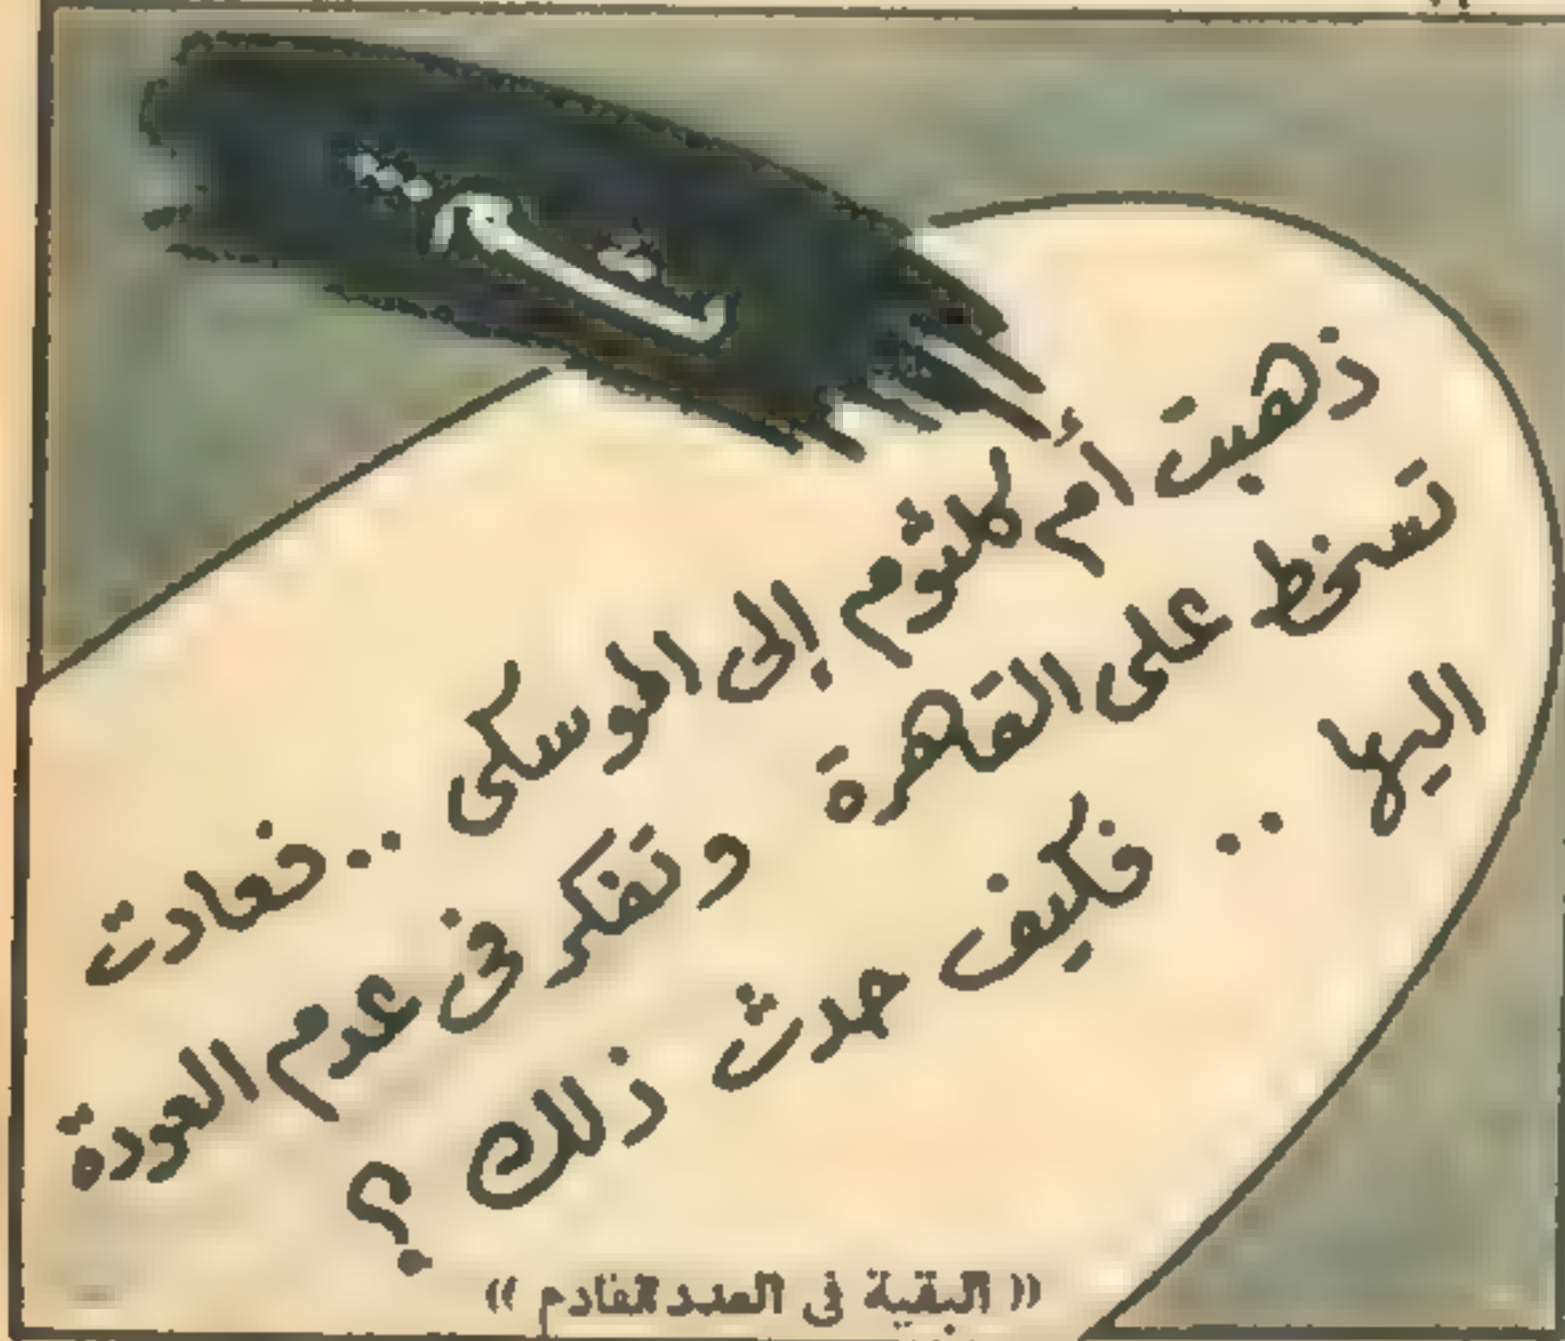 تم...
ذهبت أم كلثوم إلى الموسكى .. فعادت
تسخط على القاهرة وتفكر فى عدم العودة
اليها .. فكيف حدث ذلك ؟
(( البقية فى العدد القادم ))